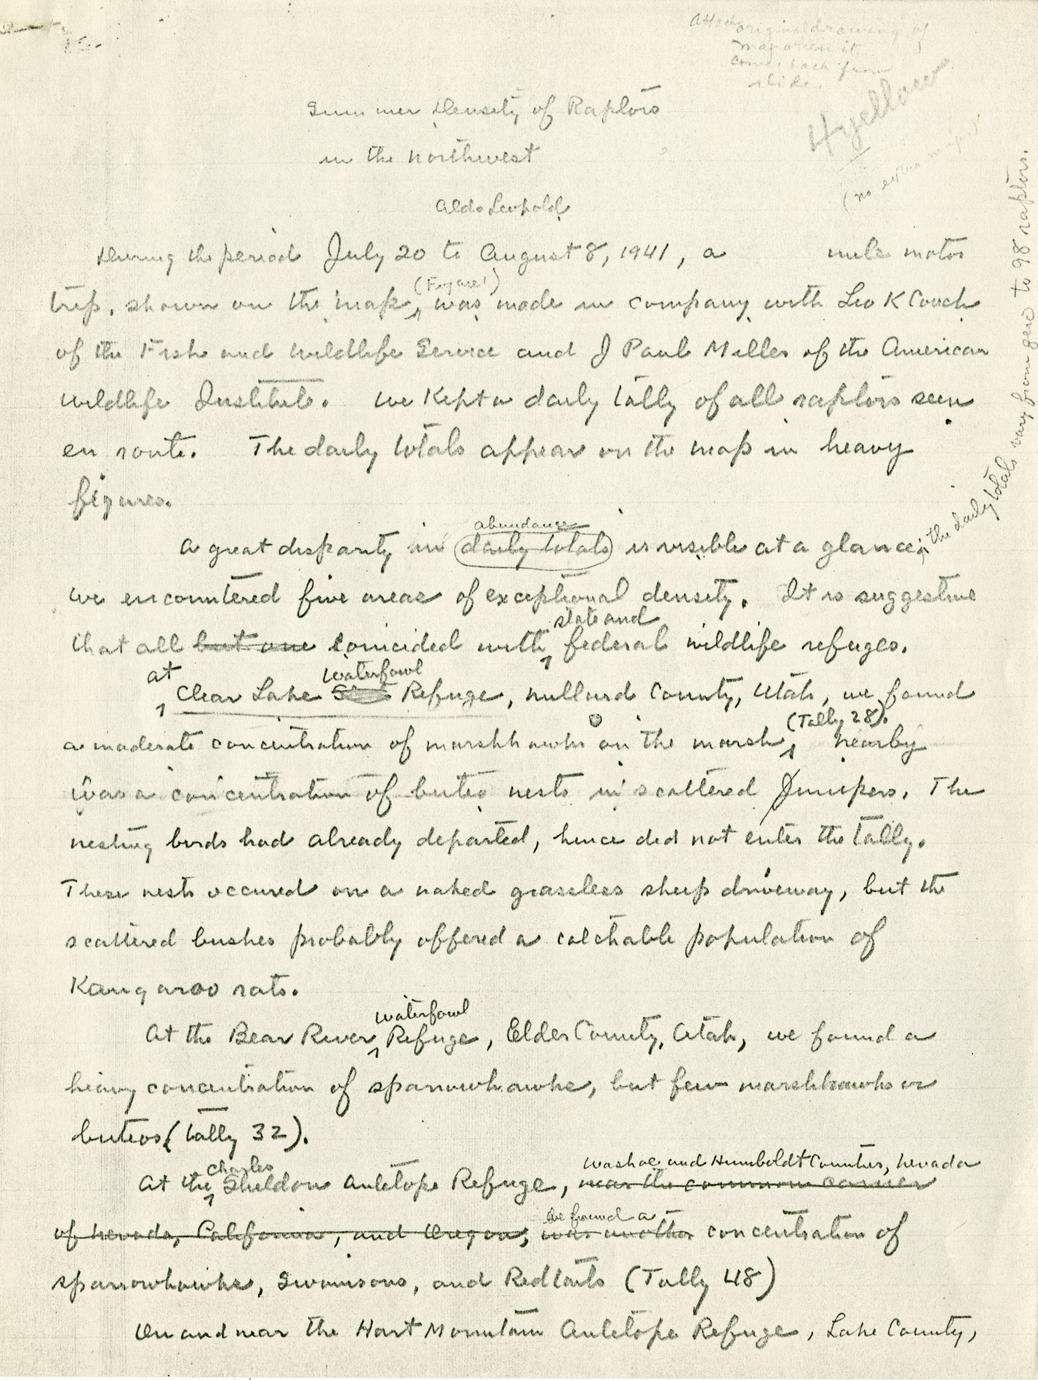 Attach original drawing of
map when it
comes back from
slide.
4 yellow
(no extra maps)
Summer Density of Raptors
in the Northwest
Aldo Leopold
During the period July 20 to August 8, 1941, a mile motor
(Figure 1)
trip, shown on the map, was made in company with Leo K Couch
of the Fish and Wildlife Service and J Paul Miller of the American
Wildlife Institute. We kept a daily tally of all raptors seen
en route. The daily totals appear on the map in heavy
figures.
abundance
A great disparity in daily totals is visible at a glance; the daily totals vary from zero to 98 raptors.
We encountered five areas of exceptional density. It is suggestive
state and
that all but one coincided with federal wildlife refuges.
at waterfowl
Clear Lake Refuge, Millurd County, Utah, we found
(Tally 28).
a moderate concentration of marshhawks on the marsh nearby
was a concentration of buteo nests in scattered Junipers. The
nesting birds had already departed, hence did not enter the tally.
These nests occured on a naked grassless sheep driveway, but the
scattered bushes probably offered a catchable population of
Kangaroo rats.
waterfowl
At the Bear River Refuge, Elder County, Utah, we found a
heavy concentration of sparrowhawks, but few marshhawks or
buteos (tally 32).
Charles Washoe and Humboldt Counties, Nevada
At the Sheldon Antelope Refuge, near the common corner
we found a
of Nevada, California, and Oregon, was another concentration of
sparrowhawks, Swainsons, and Redtails (Tally 48)
On and near the Hart Mountain Antelope Refuge, Lake County,